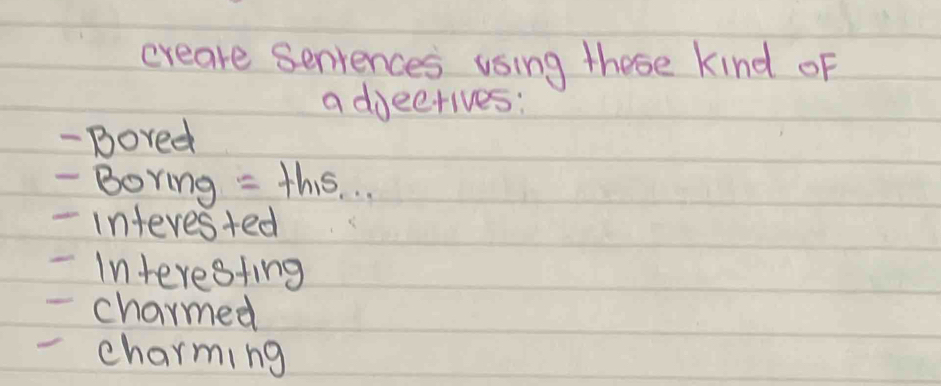 create sentences using these kind of
adjectives:
- Bored
- Boring = this...
- interested
- Interesting
- charmed
- charming